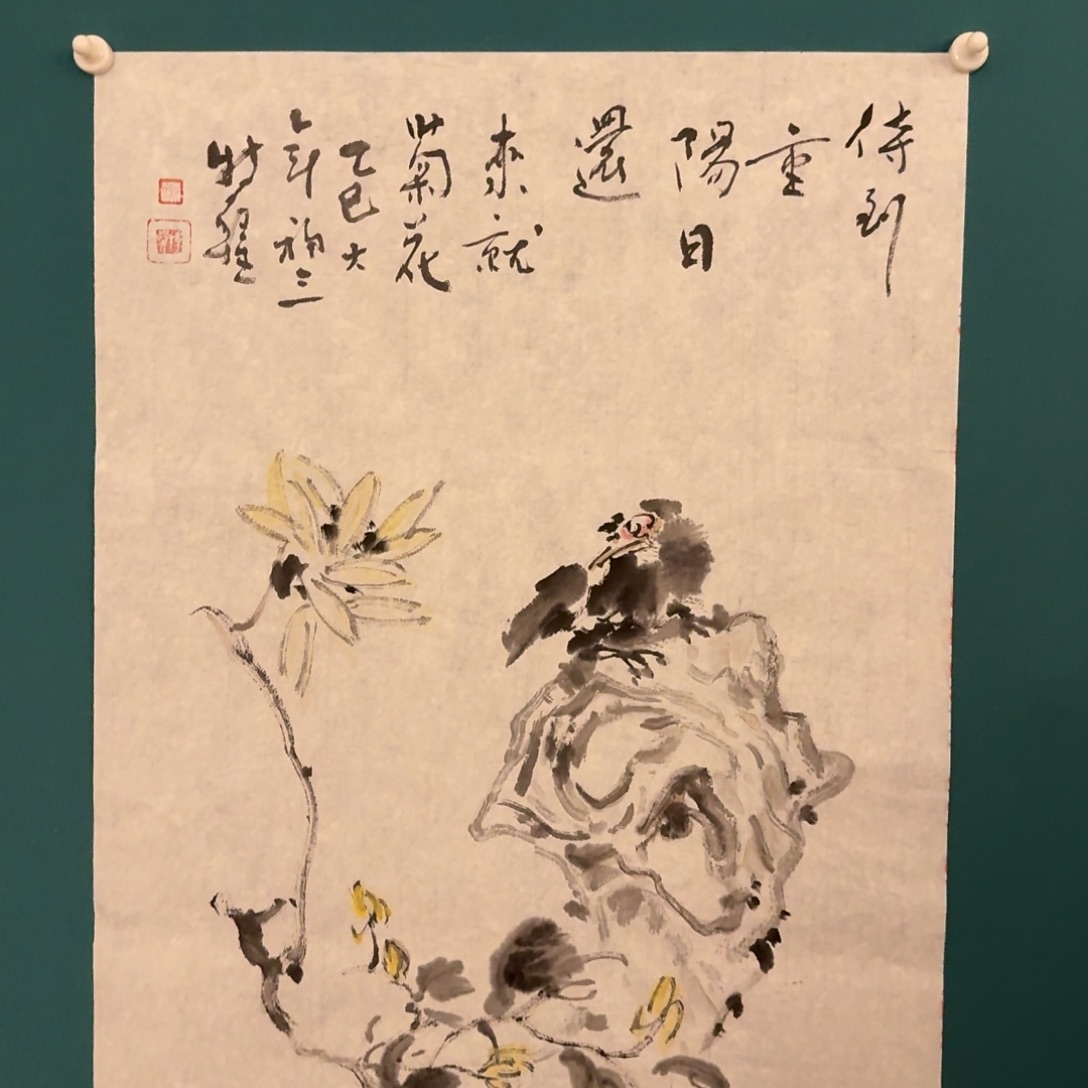 待到
重
陽日
還
來就
菊花
乙巳大
年初三